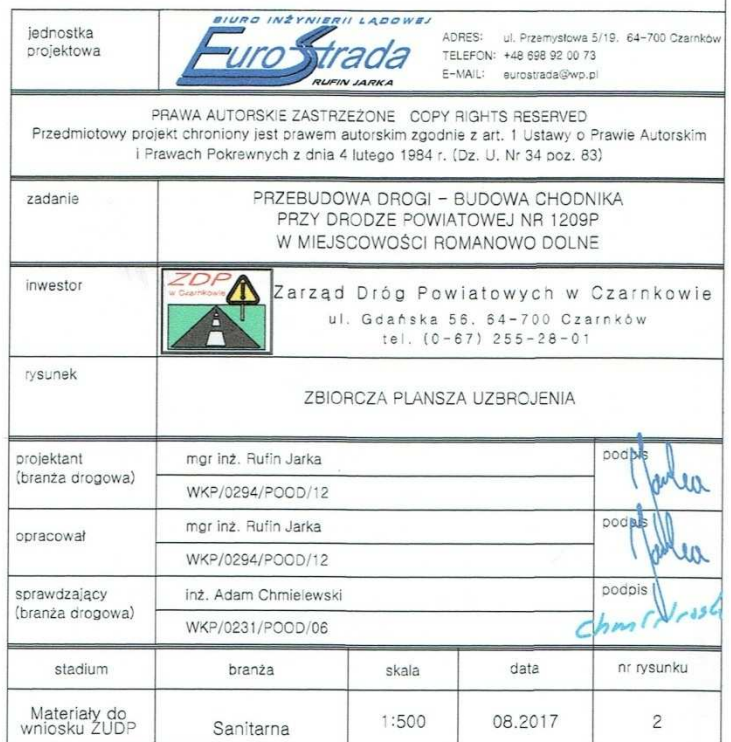 jednostka
projektowa
BIURO INŻYNIERII LĄDOWEJ
EuroStrada
RUFIN JARKA
ADRES: ul. Przemysłowa 5/19. 64-700 Czarnków
TELEFON: +48 698 92 00 73
E-MAIL: eurostrada@wp.pl
PRAWA AUTORSKIE ZASTRZEŻONE COPY RIGHTS RESERVED
Przedmiotowy projekt chroniony jest prawem autorskim zgodnie z art. 1 Ustawy o Prawie Autorskim
i Prawach Pokrewnych z dnia 4 lutego 1984 r. (Dz. U. Nr 34 poz. 83)
zadanie
PRZEBUDOWA DROGI – BUDOWA CHODNIKA
PRZY DRODZE POWIATOWEJ NR 1209P
W MIEJSCOWOŚCI ROMANOWO DOLNE
inwestor
ZDP
w Czarnkowie
Zarząd Dróg Powiatowych w Czarnkowie
ul. Gdańska 56, 64-700 Czarnków
tel. (0-67) 255-28-01
rysunek
ZBIORCZA PLANSZA UZBROJENIA
projektant
(branża drogowa)
mgr inż. Rufin Jarka
WKP/0294/POOD/12
podpis
Jarka
opracował
mgr inż. Rufin Jarka
WKP/0294/POOD/12
podpis
Jarka
sprawdzający
(branża drogowa)
inż. Adam Chmielewski
WKP/0231/POOD/06
podpis
stadium branża skala data nr rysunku
Materiały do
wniosku ZUDP Sanitarna 1:500 08.2017 2